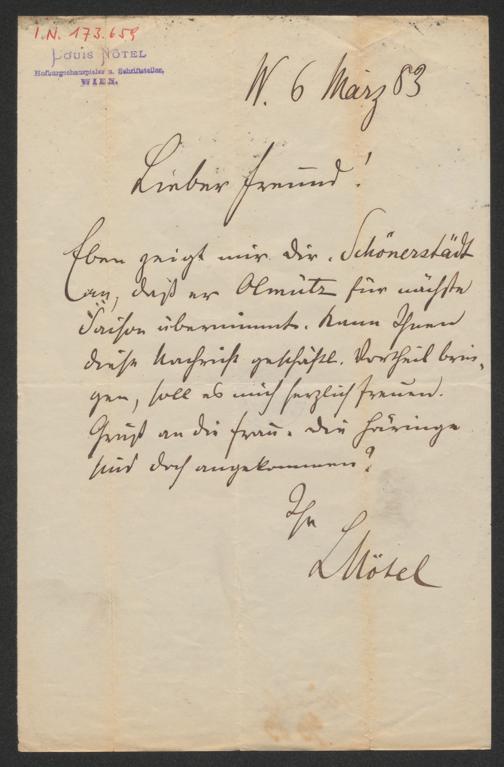 I.N. 173.659
LOUIS NÖTEL
Hofburgschauspieler u. Schriftsteller,
WIEN.
W. 6 März 83
Lieber Freund!
Eben zeigt mir Dir. Schönerstädt
an, daß er Olmütz für nächste
Saison übernimmt. Kann Ihnen
diese Nachricht geschäftl. Vortheil brin-
gen, soll es mich herzlich freuen.
Gruß an die Frau. Die Häringe
sind doch angekommen?
Ihr
LNötel